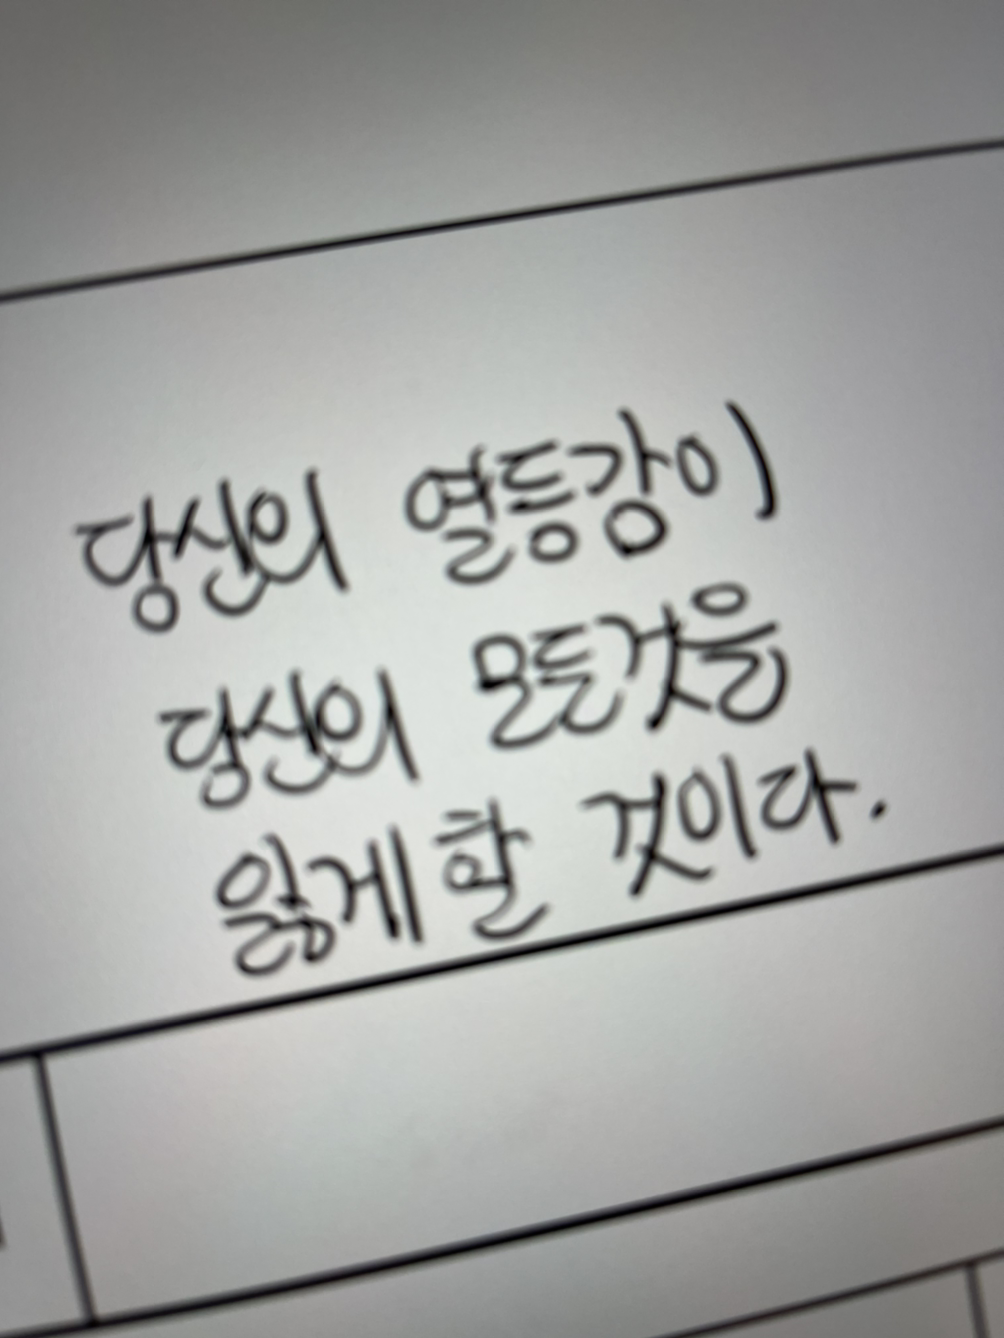 당신의 열등감이
당신의 모든것을
잃게 할 것이다.